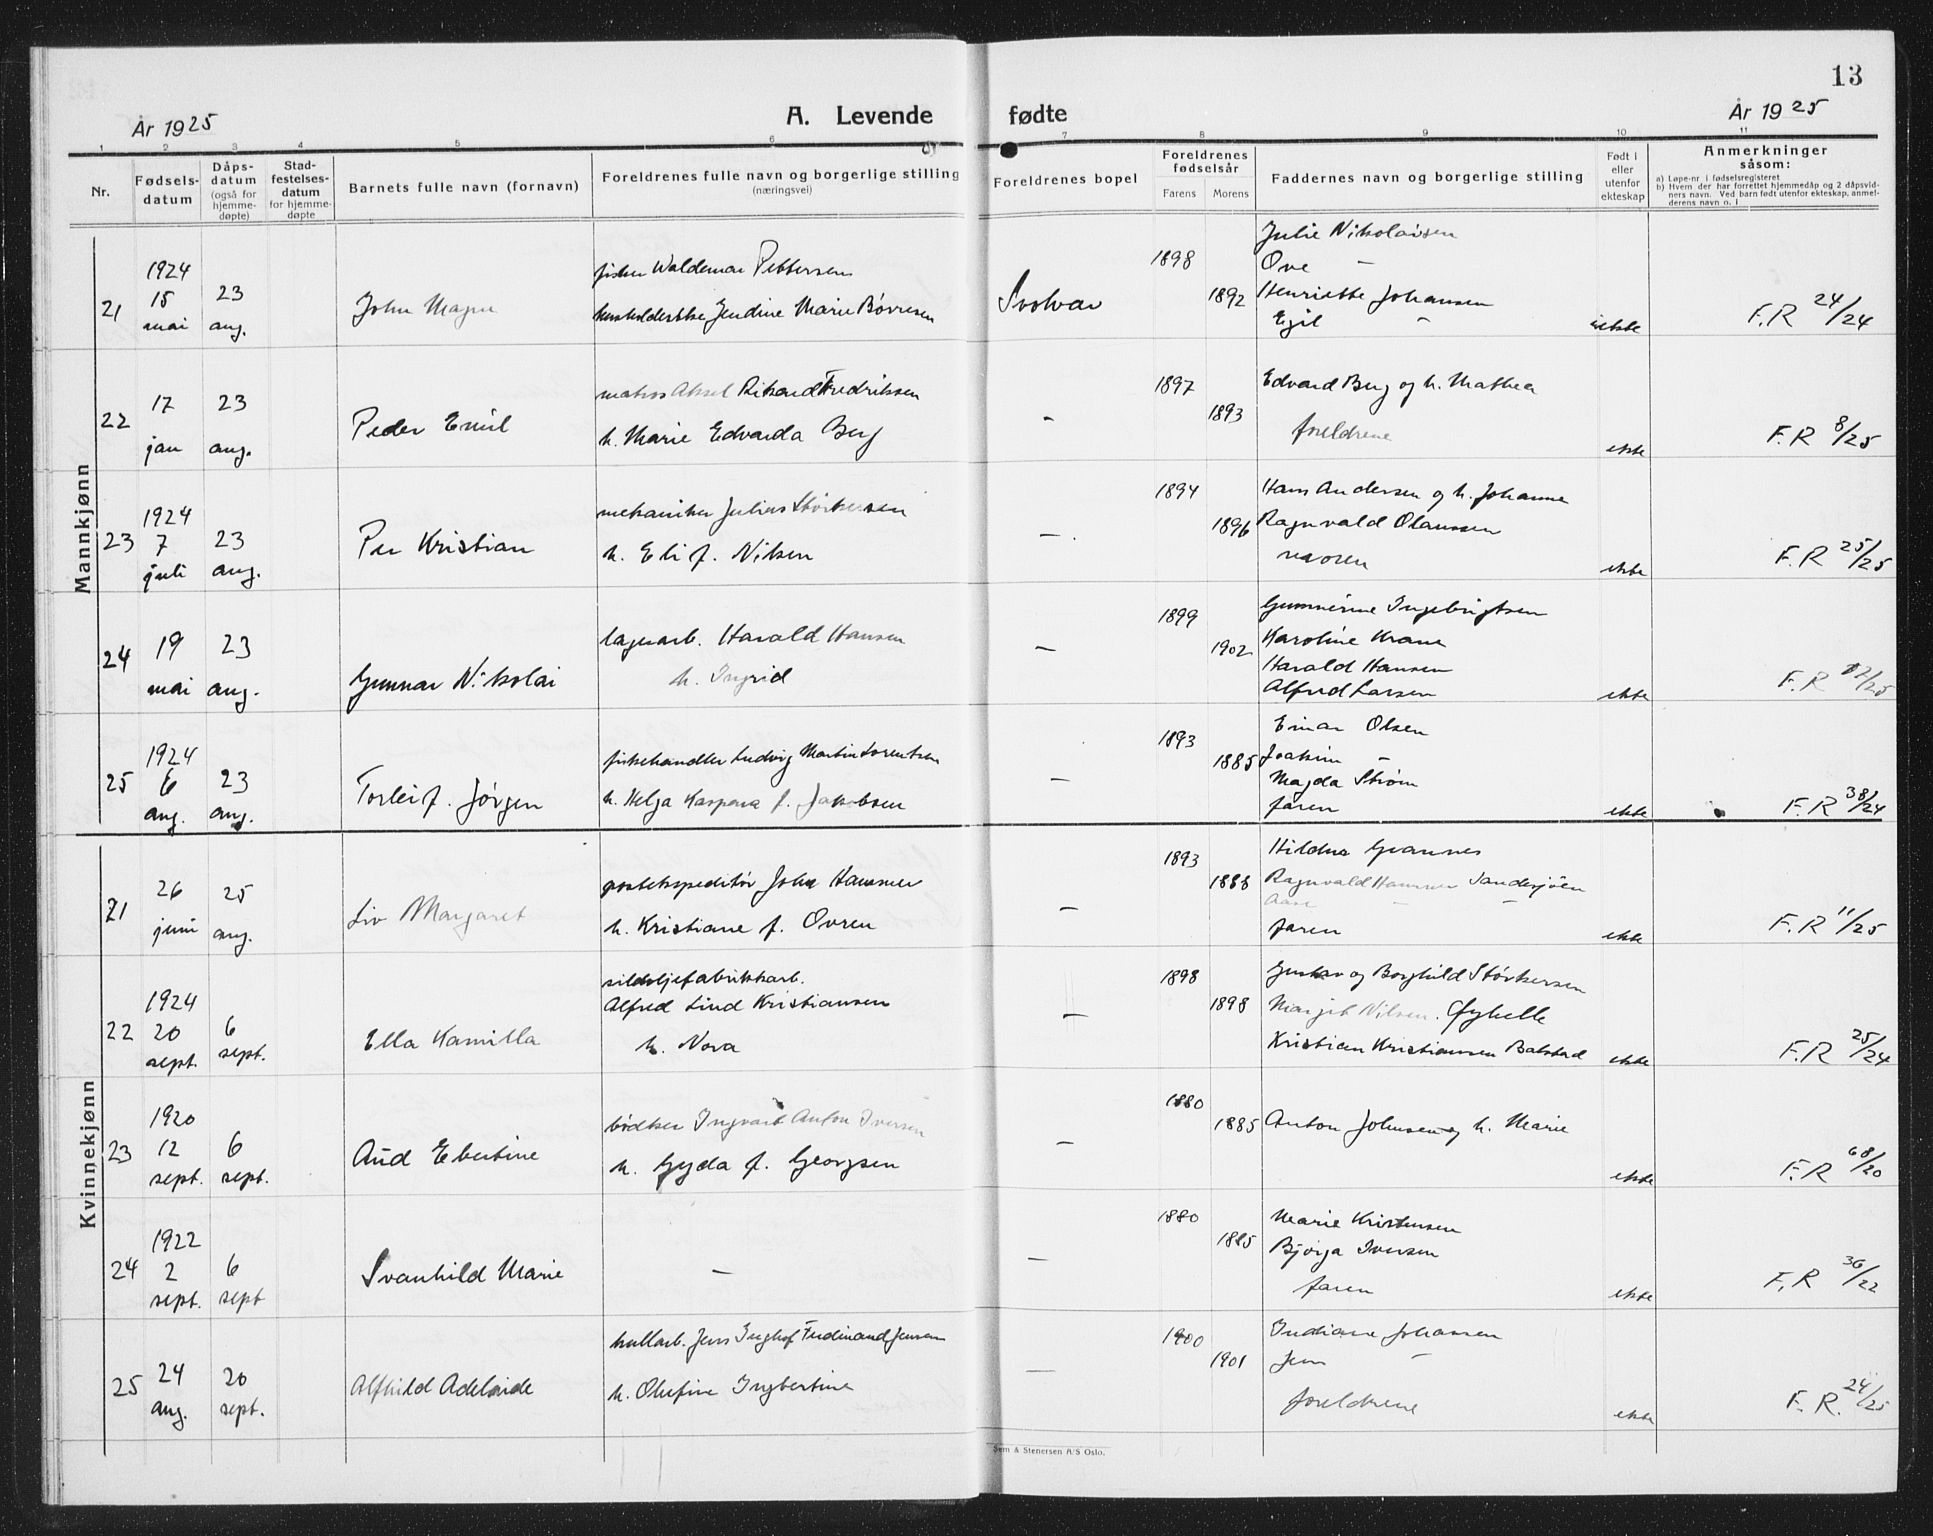 13
År 1925
A. Levende fødte
År 1925
1 2 3 4 5 6 7 8 9 10 11
Nr.
Fødsels-
datum
Dåps-
datum
(også for
hjemme-
døpte)
Stad-
festelses-
datum
for hjemme-
døpte
Barnets fulle navn (fornavn)
Foreldrenes fulle navn og borgerlige stilling
(næringsvei)
Foreldrenes bopel
Foreldrenes
fødselsår
Farens Morens
Faddernes navn og borgerlige stilling
Født i
eller
utenfor
ekteskap
Anmerkninger
såsom:
a) Løpe-nr i fødselsregisteret
b) Hvem der har forrettet hjemmedåp og 2 dåpsvid-
ners navn. Ved barn født utenfor ekteskap, anmel-
derens navn o. l
Mannkjønn
21
1924
15
mai
23
aug.
John Magne
fisker Waldemar Pettersen
Jendine Marie Børresen
Svolvær
1898
1892
Julie Nikolaisen
Ove —
Henriette Johansen
Egil —
uekte
F.R 24/24
22
17
jan
23
aug.
Peder Emil
matros Aksel Rikard Fredriksen
h. Marie Edvarda Berg
—
1897
1893
Edvard Berg og h. Mathea
foreldrene
ekte
F.R 8/25
23
1924
7
juli
23
aug.
Per Kristian
mekaniker Julius Størkersen
h. Eli f. Nilsen
—
1894
1896
Hans Andersen og h. Johanne
Ragnvald Olaussen
moren
ekte
F.R 25/25
24
19
mai
23
aug.
Gunnar Nikolai
lagerarb. Harald Hansen
h. Ingrid
—
1899
1902
Ingebrigtsen
Karoline Krane
Harald Hansen
Alfred Larsen
ekte
F.R
25
1924
6
aug.
23
aug.
Torleif Jørgen
fiskehandler Ludvig Martin Lorentsen
h. Helga Kaspara f. Jakobsen
—
1893
1885
Einar Olsen
Joakim —
Magda Strøm
faren
ekte
F.R 38/24
Kvinnekjønn
21
26
juni
25
aug.
Liv Margaret
postekspeditør John Hammer
h. Kristiane f. Ovren
—
1893
1888
Ragnvald Hammer Sandesjøen
Aase — —
faren
ekte
F.R 11/25
22
1924
20
sept.
6
sept.
Ella Kamilla
sildoljefabrikkarb.
Alfred Lind Kristiansen
h. Nora
—
1898
1898
Gustav og Borghild Størkersen
Margit Nilsen. Øyhelle
Kristian Kristiansen Balstad
ekte
F.R 25/24
23
1920
12
sept.
6
sept.
Aud Ebertine
bødker Ingvart Anton Iversen
h. Gyda f. Georgsen
—
1880
1885
Anton Johnsen og h. Marie
ekte
F.R 68/20
24
1922
2
sept.
6
sept
Svanhild Marie
—
—
1880
1885
Marie Kristensen
Iversen
faren
ekte
F.R 36/22
25
24
aug.
20
sept.
Alfhild Adelaide
kullarb. Jens Inghof Ferdinand Jensen
h. Olufine Ingbertine
—
1900
1901
Indiane Johansen
Jens —
foreldrene
ekte
F.R. 24/25
Sem & Stenersen A/S Oslo.